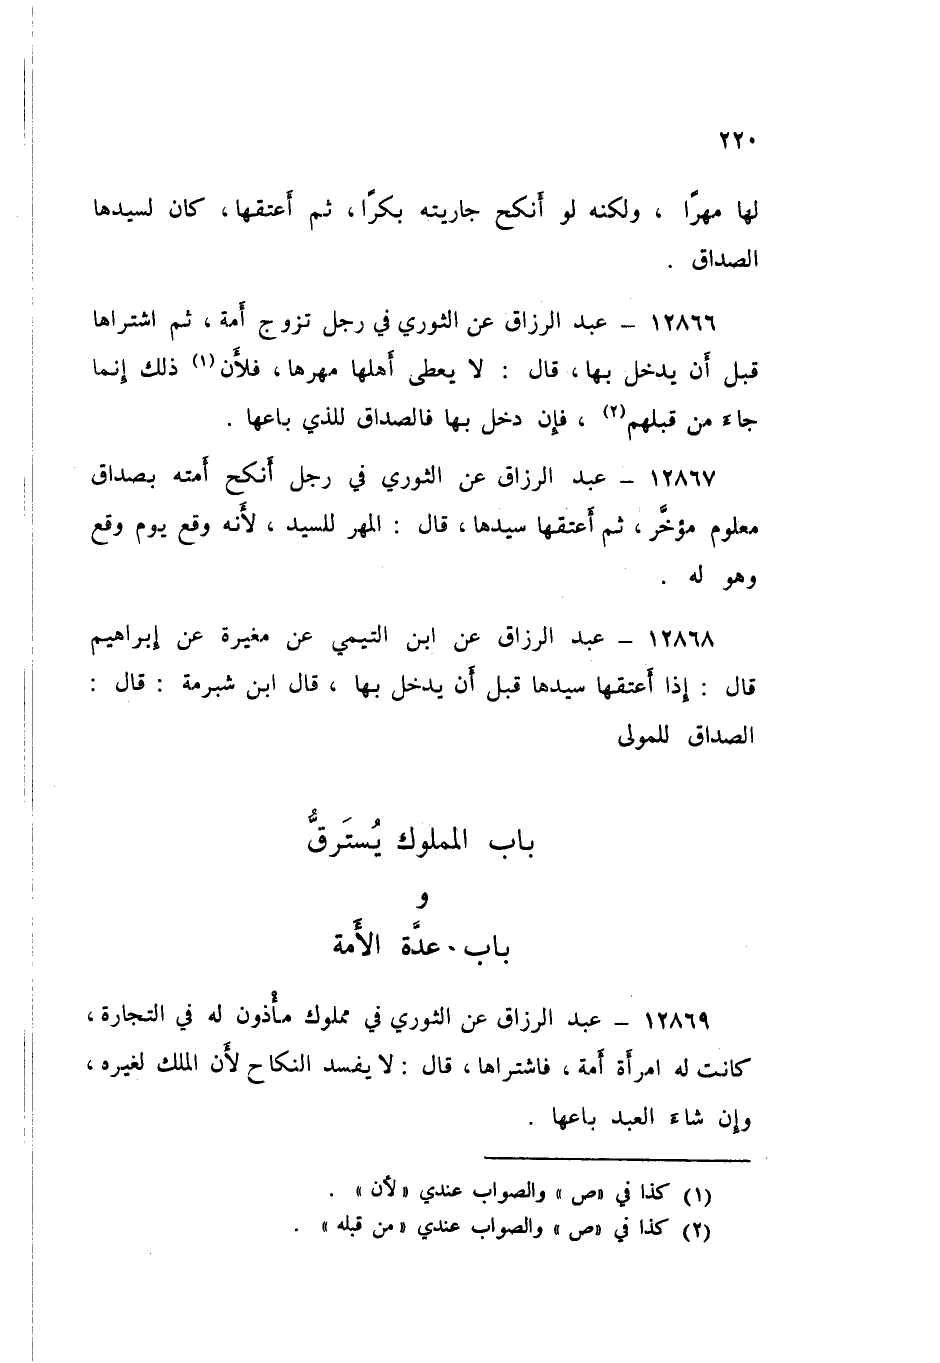 ٢٢٠
لها مهرًا ، ولكنه لو أَنكح جاريته بكرًا ، ثم أَعتقها ، كان لسيدها
الصداق .
١٢٨٦٦ – عبد الرزاق عن الثوري في رجل تزوج أَمة ، ثم اشتراها
قبل أَن يدخل بها ، قال : لا يعطى أَهلها مهرها ، فلأَن(١) ذلك إِنما
جاءَ من قبلهم(٢) ، فإِن دخل بها فالصداق للذي باعها .
١٢٨٦٧ – عبد الرزاق عن الثوري في رجل أَنكح أَمته بصداق
معلوم مؤخَّر ، ثم أَعتقها سيدها ، قال : المهر للسيد ، لأَنه وقع يوم وقع
وهو له .
١٢٨٦٨ – عبد الرزاق عن ابن التيمي عن مغيرة عن إِبراهيم
قال : إِذا أَعتقها سيدها قبل أَن يدخل بها ، قال ابن شبرمة : قال :
الصداق للمولى
باب المملوك يُستَرقُّ
و
باب . عدَّة الأَمة
١٢٨٦٩ – عبد الرزاق عن الثوري في مملوك مأْذون له في التجارة ،
كانت له امرأَة أَمة ، فاشتراها ، قال : لا يفسد النكاح لأَن الملك لغيره ،
وإِن شاءَ العبد باعها .
(١) كذا في «ص» والصواب عندي «لأن» .
(٢) كذا في «ص» والصواب عندي «من قبله» .